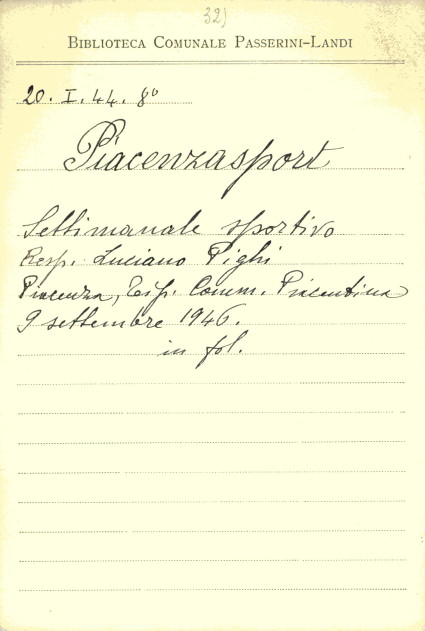 32)
BIBLIOTECA COMUNALE PASSERINI-LANDI
20. I. 44. 8º
Piacenzasport
Settimanale sportivo
Resp. Luciano Pighi
Piacenza, Tip. Comm. Piacentina
9 settembre 1946.
in fol.